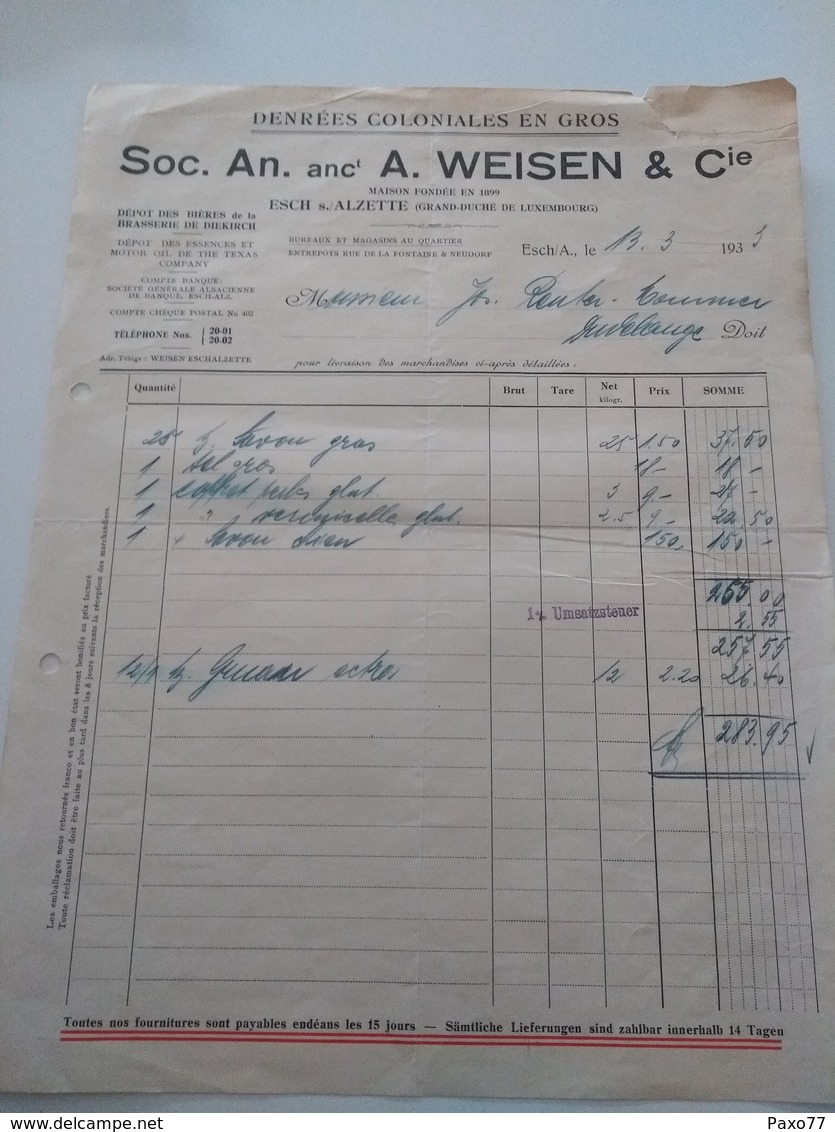 DENRÉES COLONIALES EN GROS
Soc. An. anct A. WEISEN & Cie
MAISON FONDÉE EN 1899
ESCH s./ALZETTE (GRAND-DUCHÉ DE LUXEMBOURG)
DÉPOT DES BIÈRES de la
BRASSERIE DE DIEKIRCH
DÉPOT DES ESSENCES ET
MOTOR OIL DE THE TEXAS
COMPANY
COMPTE BANQUE:
SOCIÉTÉ GÉNÉRALE ALSACIENNE
DE BANQUE, ESCH-ALZ.
COMPTE CHÈQUE POSTAL No 402
TÉLÉPHONE Nos. 20-01
20-02
Adr. Télégr: WEISEN ESCHALZETTE
BUREAUX ET MAGASINS AU QUARTIER
ENTREPOTS RUE DE LA FONTAINE & NEUDORF
Esch/A., le 13. 3 1933
Monsieur Jos. Reuter-
Doit
pour livraison des marchandises ci-après détaillées:
Quantité Brut Tare Net kilogr. Prix SOMME
25 Savon gras 25 1.50 37.50
1 Sel gros 18- 18-
1 coffret glut. 3 9- 27-
1 " vermicelle glut. 2.5 9- 22.50
1 Savon 150. 150-
255.00
1% Umsatzsteuer 2.55
257.55
12/1 extra 12 2.20 26.40
283.95
Les emballages nous retournés franco et en bon état seront bonifiés au prix facturé
Toute réclamation doit être faite au plus tard dans les 8 jours suivants la réception des marchandises.
Toutes nos fournitures sont payables endéans les 15 jours — Sämtliche Lieferungen sind zahlbar innerhalb 14 Tagen
www.delcampe.net
Paxo77